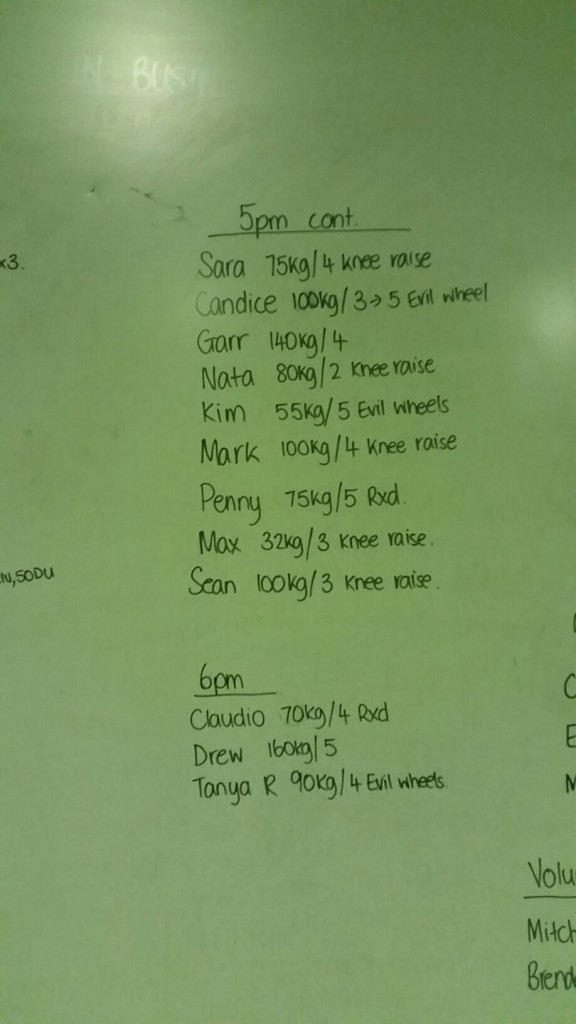 BUSY
x3.
5pm cont.
Sara 75kg/4 knee raise
Candice 100kg/3→5 Evil wheel
Garr 140kg/4
Nata 80kg/2 knee raise
Kim 55kg/5 Evil wheels
Mark 100kg/4 knee raise
Penny 75kg/5 Rxd.
Max 32kg/3 knee raise.
Sean 100kg/3 knee raise.
,50DU
6pm
Claudio 70kg/4 Rxd
Drew 160kg/5
Tanya R 90kg/4 Evil wheels.
Volu
Mitch
Brend